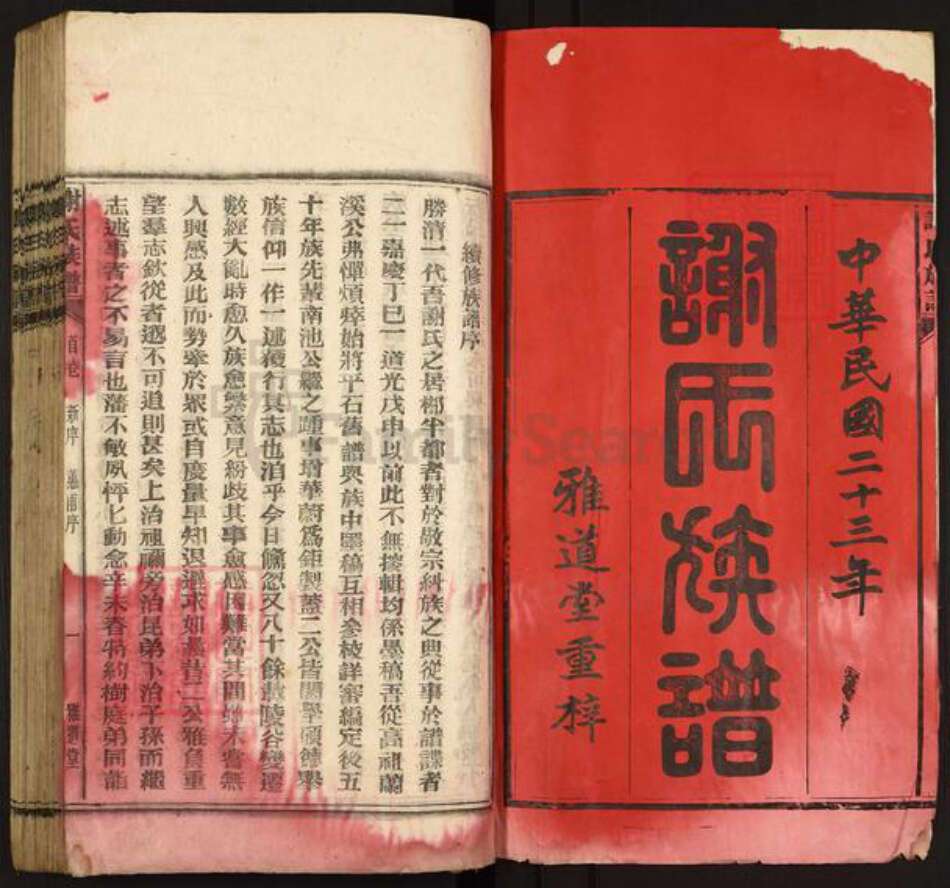 中華民國二十三年
謝氏族譜
雅道堂重梓
續修族譜序
勝清一代吾謝氏之居梛半都者對於敬宗糾族之典從事於譜諜者
二一嘉慶丁巳一道光戊申以前此不無搜輯均係墨稿吾從高祖蘭
溪公弗憚煩瘁始將平石舊譜與族中墨稿互相參校詳審編定後五
十年族先輩南池公繼之踵事增華蔚為鉅製蓋二公皆閎學碩德舉
族信仰一作一述獲行其志也洎乎今日儵忽又八十餘載陵谷變遷
數經大亂時愈久族愈繁意見紛歧其事愈感困難當其間始未嘗無
人興感及此而勢牽於眾或自度量早知退遜求如曩昔二公雅負重
望羣志欽從者邈不可追則甚矣上治祖禰旁治昆弟下治子孫而繼
志述事者之不易言也藩不敏夙怦匕動念辛未春特約樹庭弟同詣
謝氏族譜
首卷
新序
一
雅道堂
Family Search